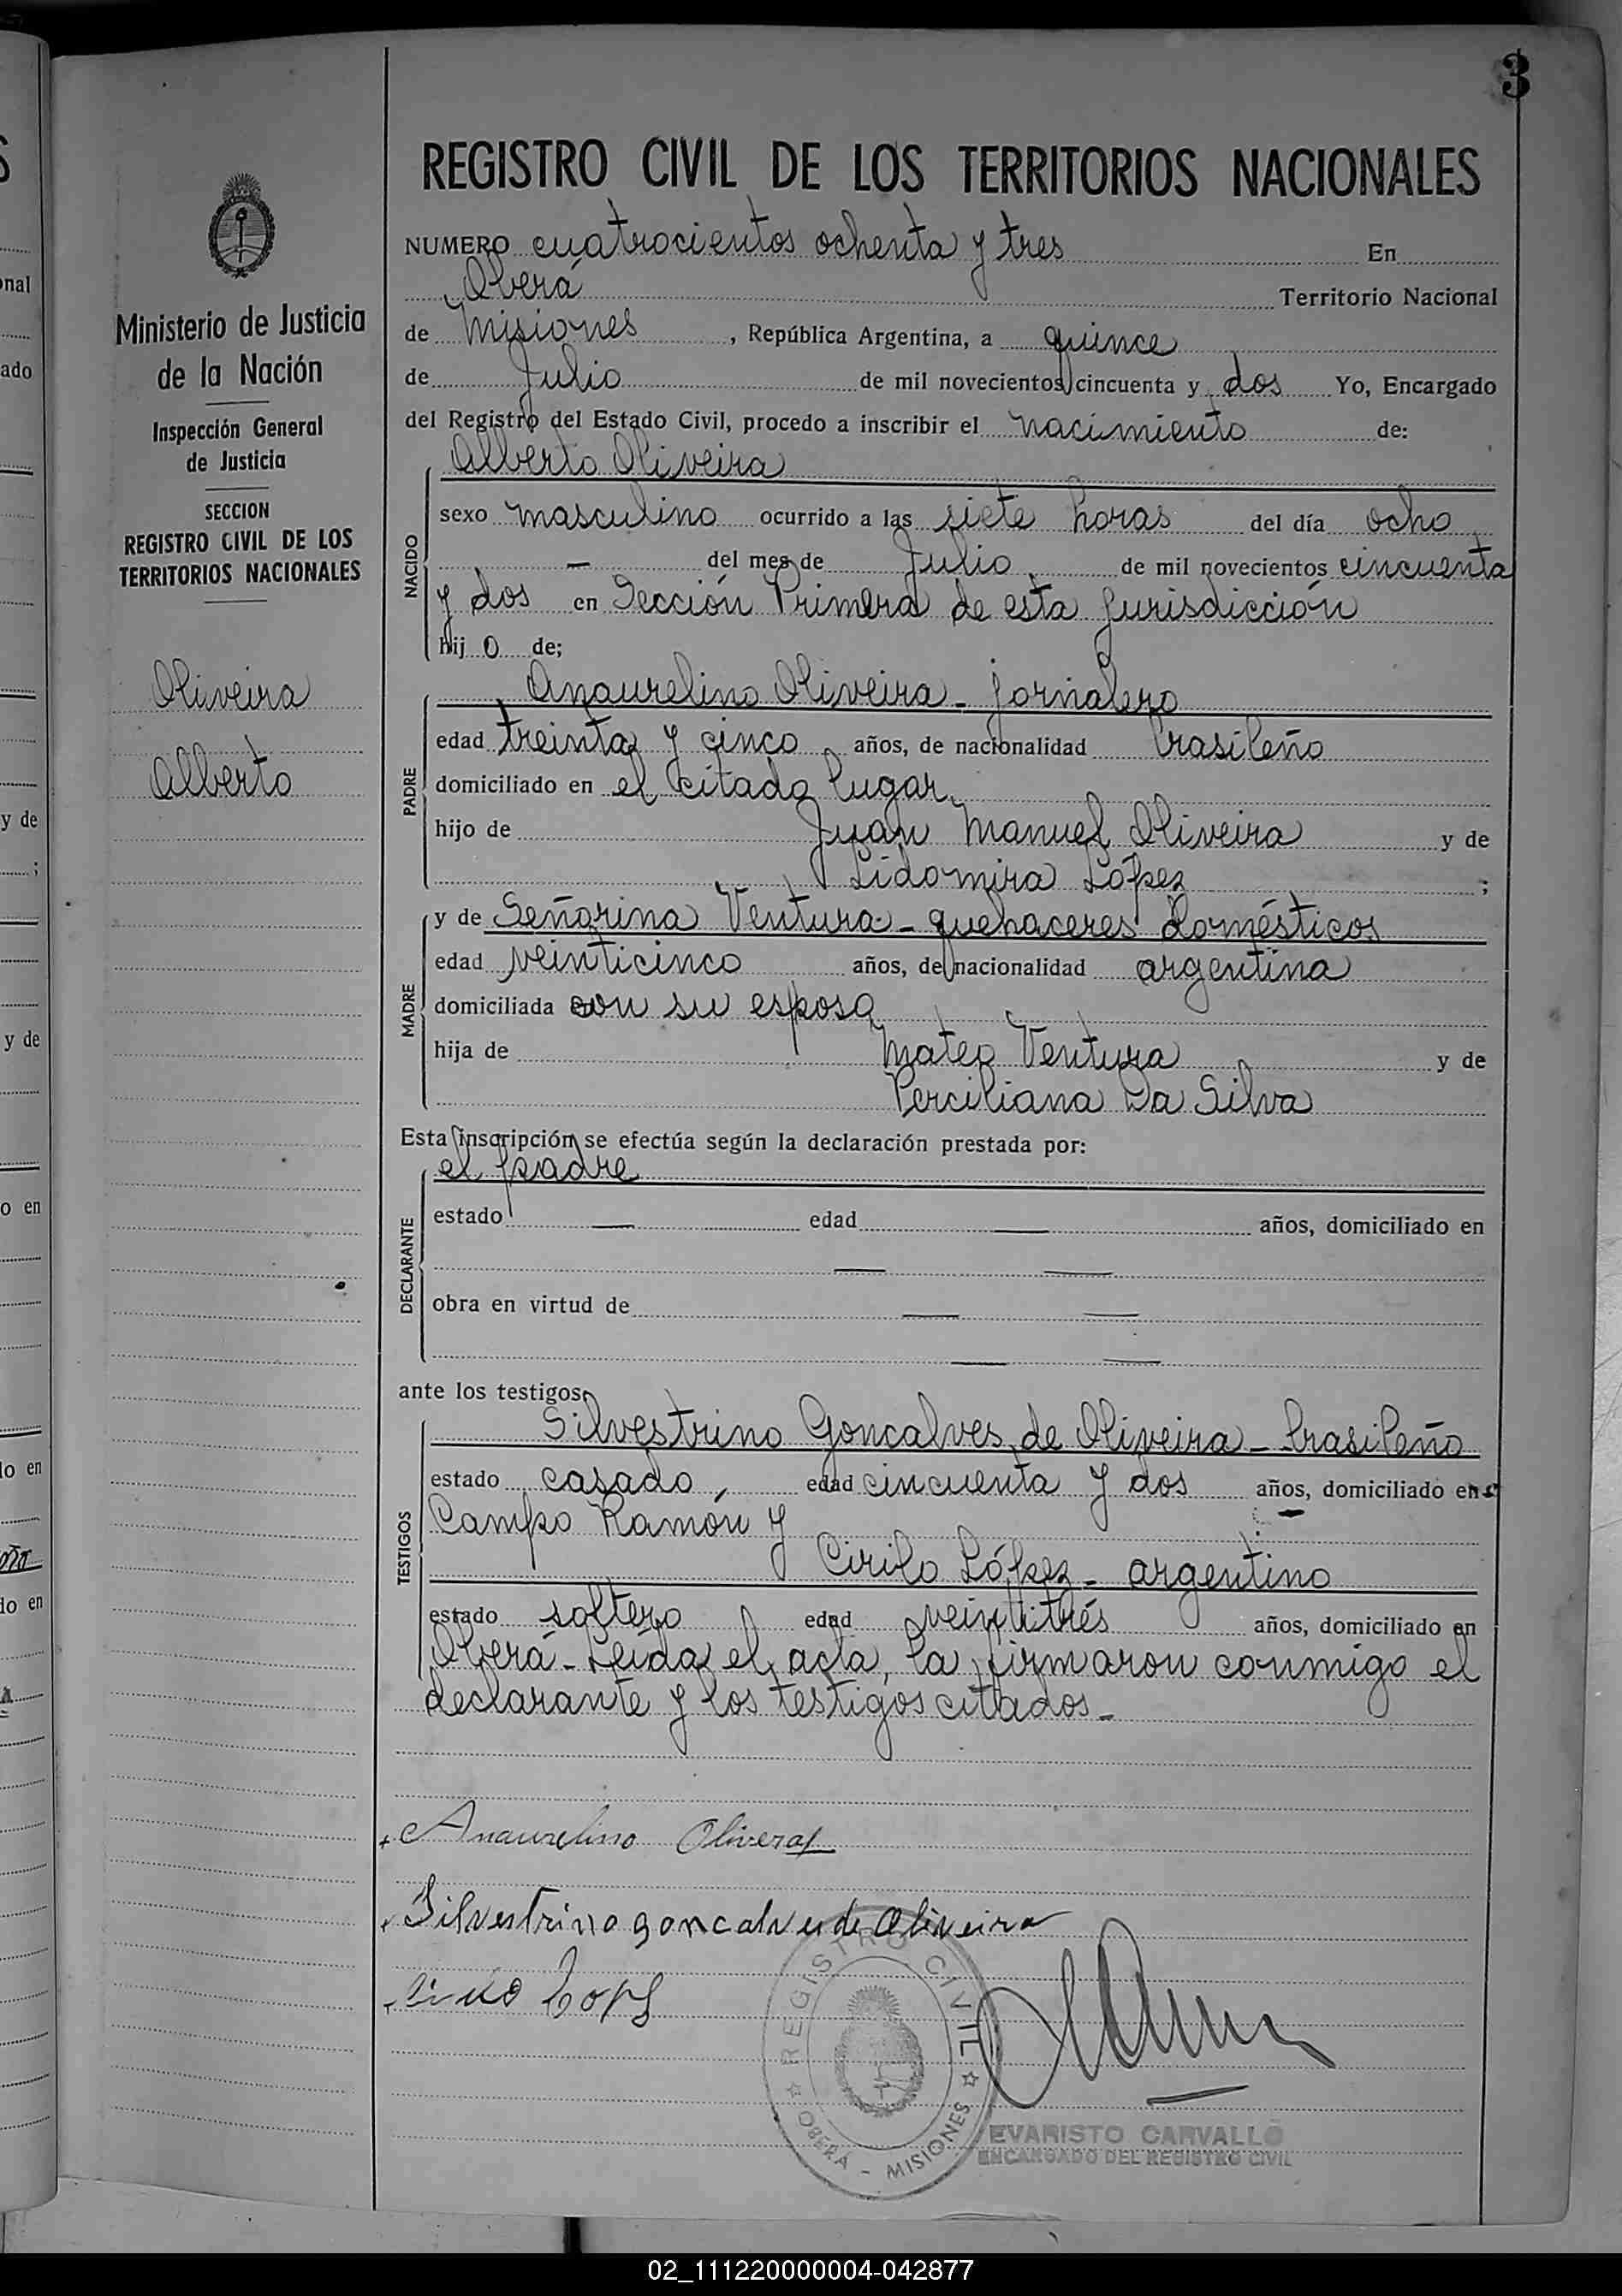 3
REGISTRO CIVIL DE LOS TERRITORIOS NACIONALES
Ministerio de Justicia
de la Nación
Inspección General
de Justicia
SECCION
REGISTRO CIVIL DE LOS
TERRITORIOS NACIONALES
Oliveira
Alberto
NUMERO cuatrocientos ochenta y tres En
Oberá Territorio Nacional
de Misiones, República Argentina, a quince
de Julio de mil novecientos cincuenta y dos Yo, Encargado
del Registro del Estado Civil, procedo a inscribir el nacimiento de:
NACIDO
Alberto Oliveira
sexo masculino ocurrido a las siete horas del día ocho
— del mes de Julio de mil novecientos cincuenta
y dos en Sección Primera de esta jurisdicción
hijo de;
PADRE
Anaurelino Oliveira - jornalero
edad treinta y cinco años, de nacionalidad brasileño
domiciliado en el citado lugar
hijo de Juan Manuel Oliveira y de
Lidomira López ;
MADRE
y de Señorina Ventura - quehaceres domésticos
edad veinticinco años, de nacionalidad argentina
domiciliada con su esposo
hija de Mateo Ventura y de
Perciliana Da Silva
Esta inscripción se efectúa según la declaración prestada por:
DECLARANTE
el padre
estado — edad — años, domiciliado en
— —
obra en virtud de — —
— —
ante los testigos
TESTIGOS
Silvestrino Goncalves de Oliveira - brasileño
estado casado, edad cincuenta y dos años, domiciliado en
Campo Ramón y
Cirilo López - argentino
estado soltero edad veintitrés años, domiciliado en
Oberá - Leída el acta, la firmaron conmigo el
declarante y los testigos citados -
Anaurelino Olivera
Silvestrino goncalves de Oliveira
REGISTRO CIVIL
OBERÁ - MISIONES
EVARISTO CARVALLO
ENCARGADO DEL REGISTRO CIVIL
02_111220000004-042877
nal
ado
y de
;
y de
o en
do en
do en